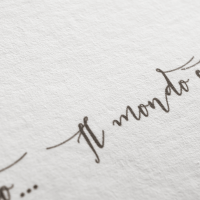 o... Il mondo